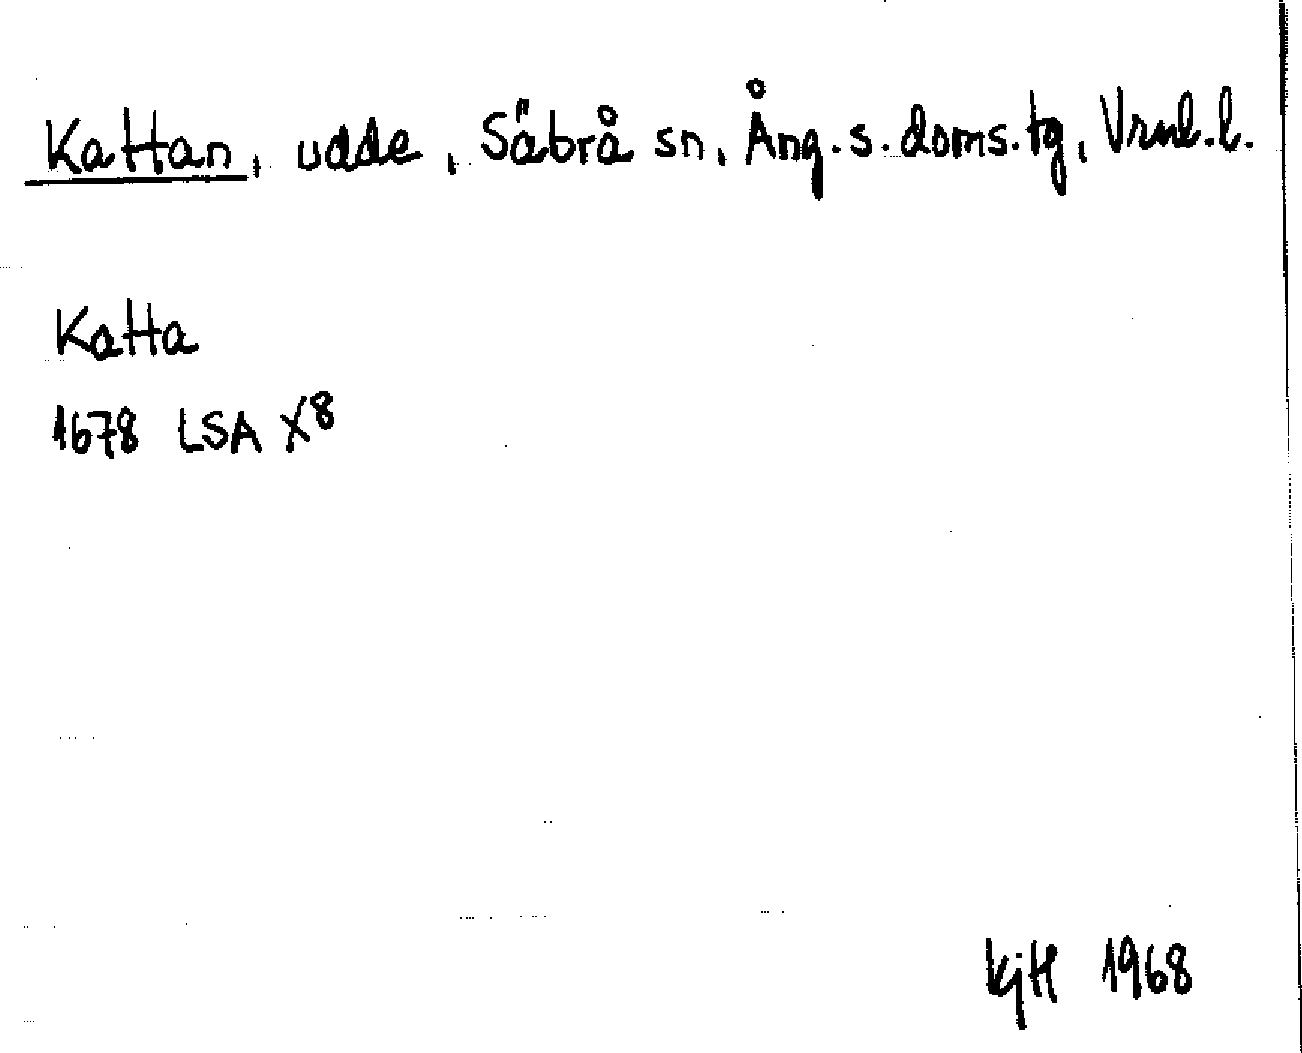 Kattan, udde, Säbrå sn, Ång.s.doms.tg, Vrnl.l.
Katta
1678 LSA X8
KjH 1968